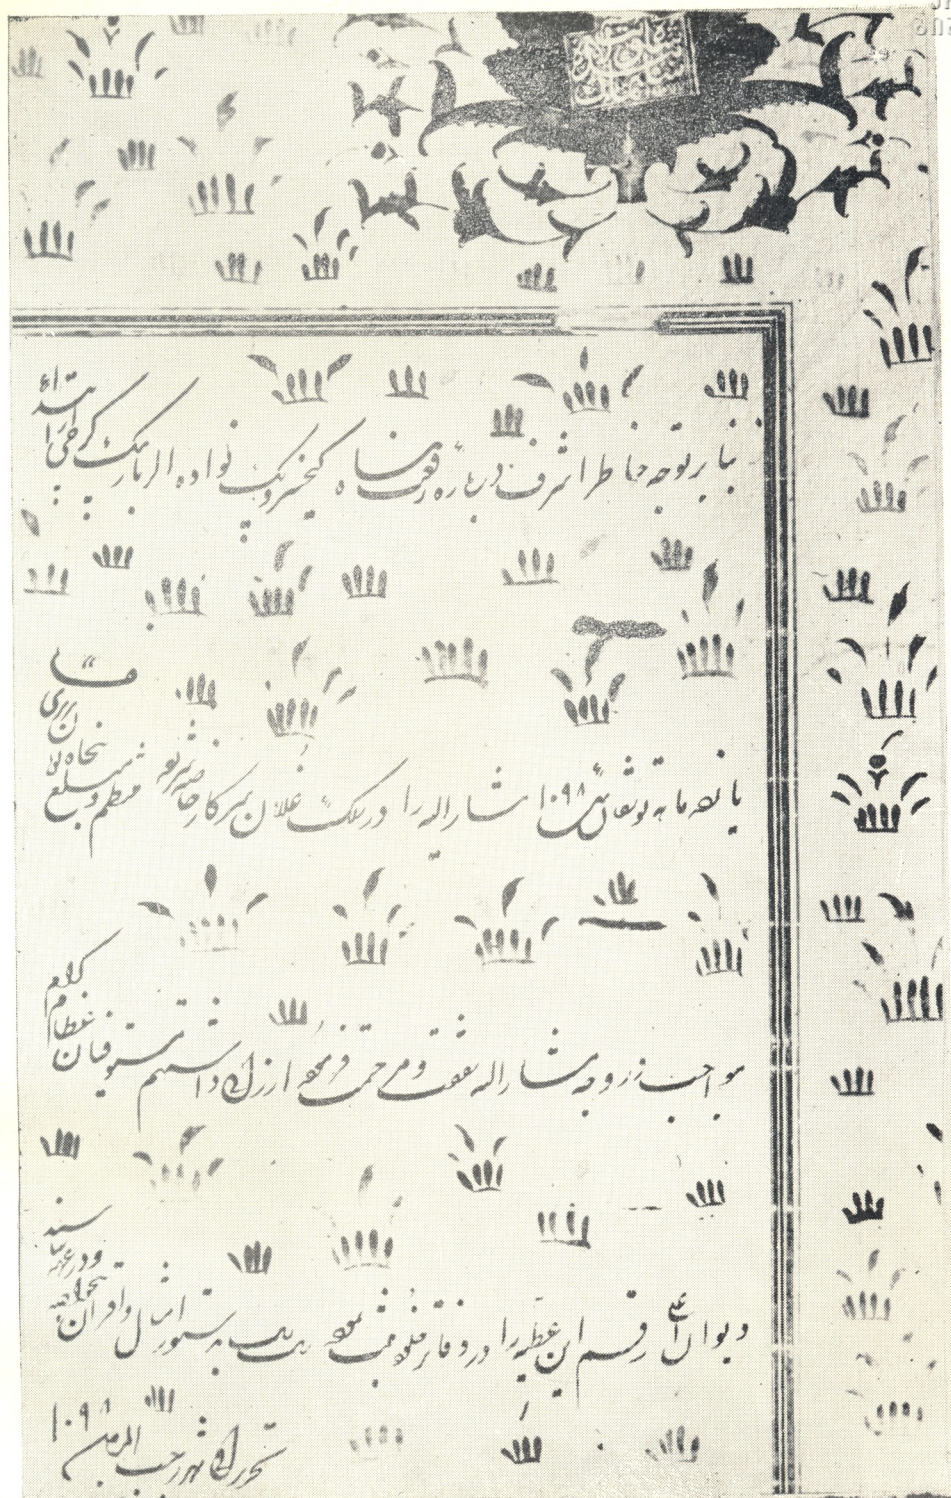 بنابر توجه خاطر اشرف درباره رفعت پناه کیخسرو بیک نواده الله یار بیک گرجی از ابتدای
یازده ماهه توشقان ئیل ۱۰۹۸ مشار الیه را در سلک غلامان سرکار خاصه شریفه منتظم و مبلغ پنجاه تومان تبریزی
مواجب در وجه مشار الیه شفقت و مرحمت فرموده ارزانی داشتیم مستوفیان عظام کرام
دیوان اعلی رقم این عطیه را در دفاتر خلود ثبت نموده بدستور امثال و اقران تنخواه دهند و در عهده شناسند
تحریرا فی شهر رجب المرجب ۱۰۹۸